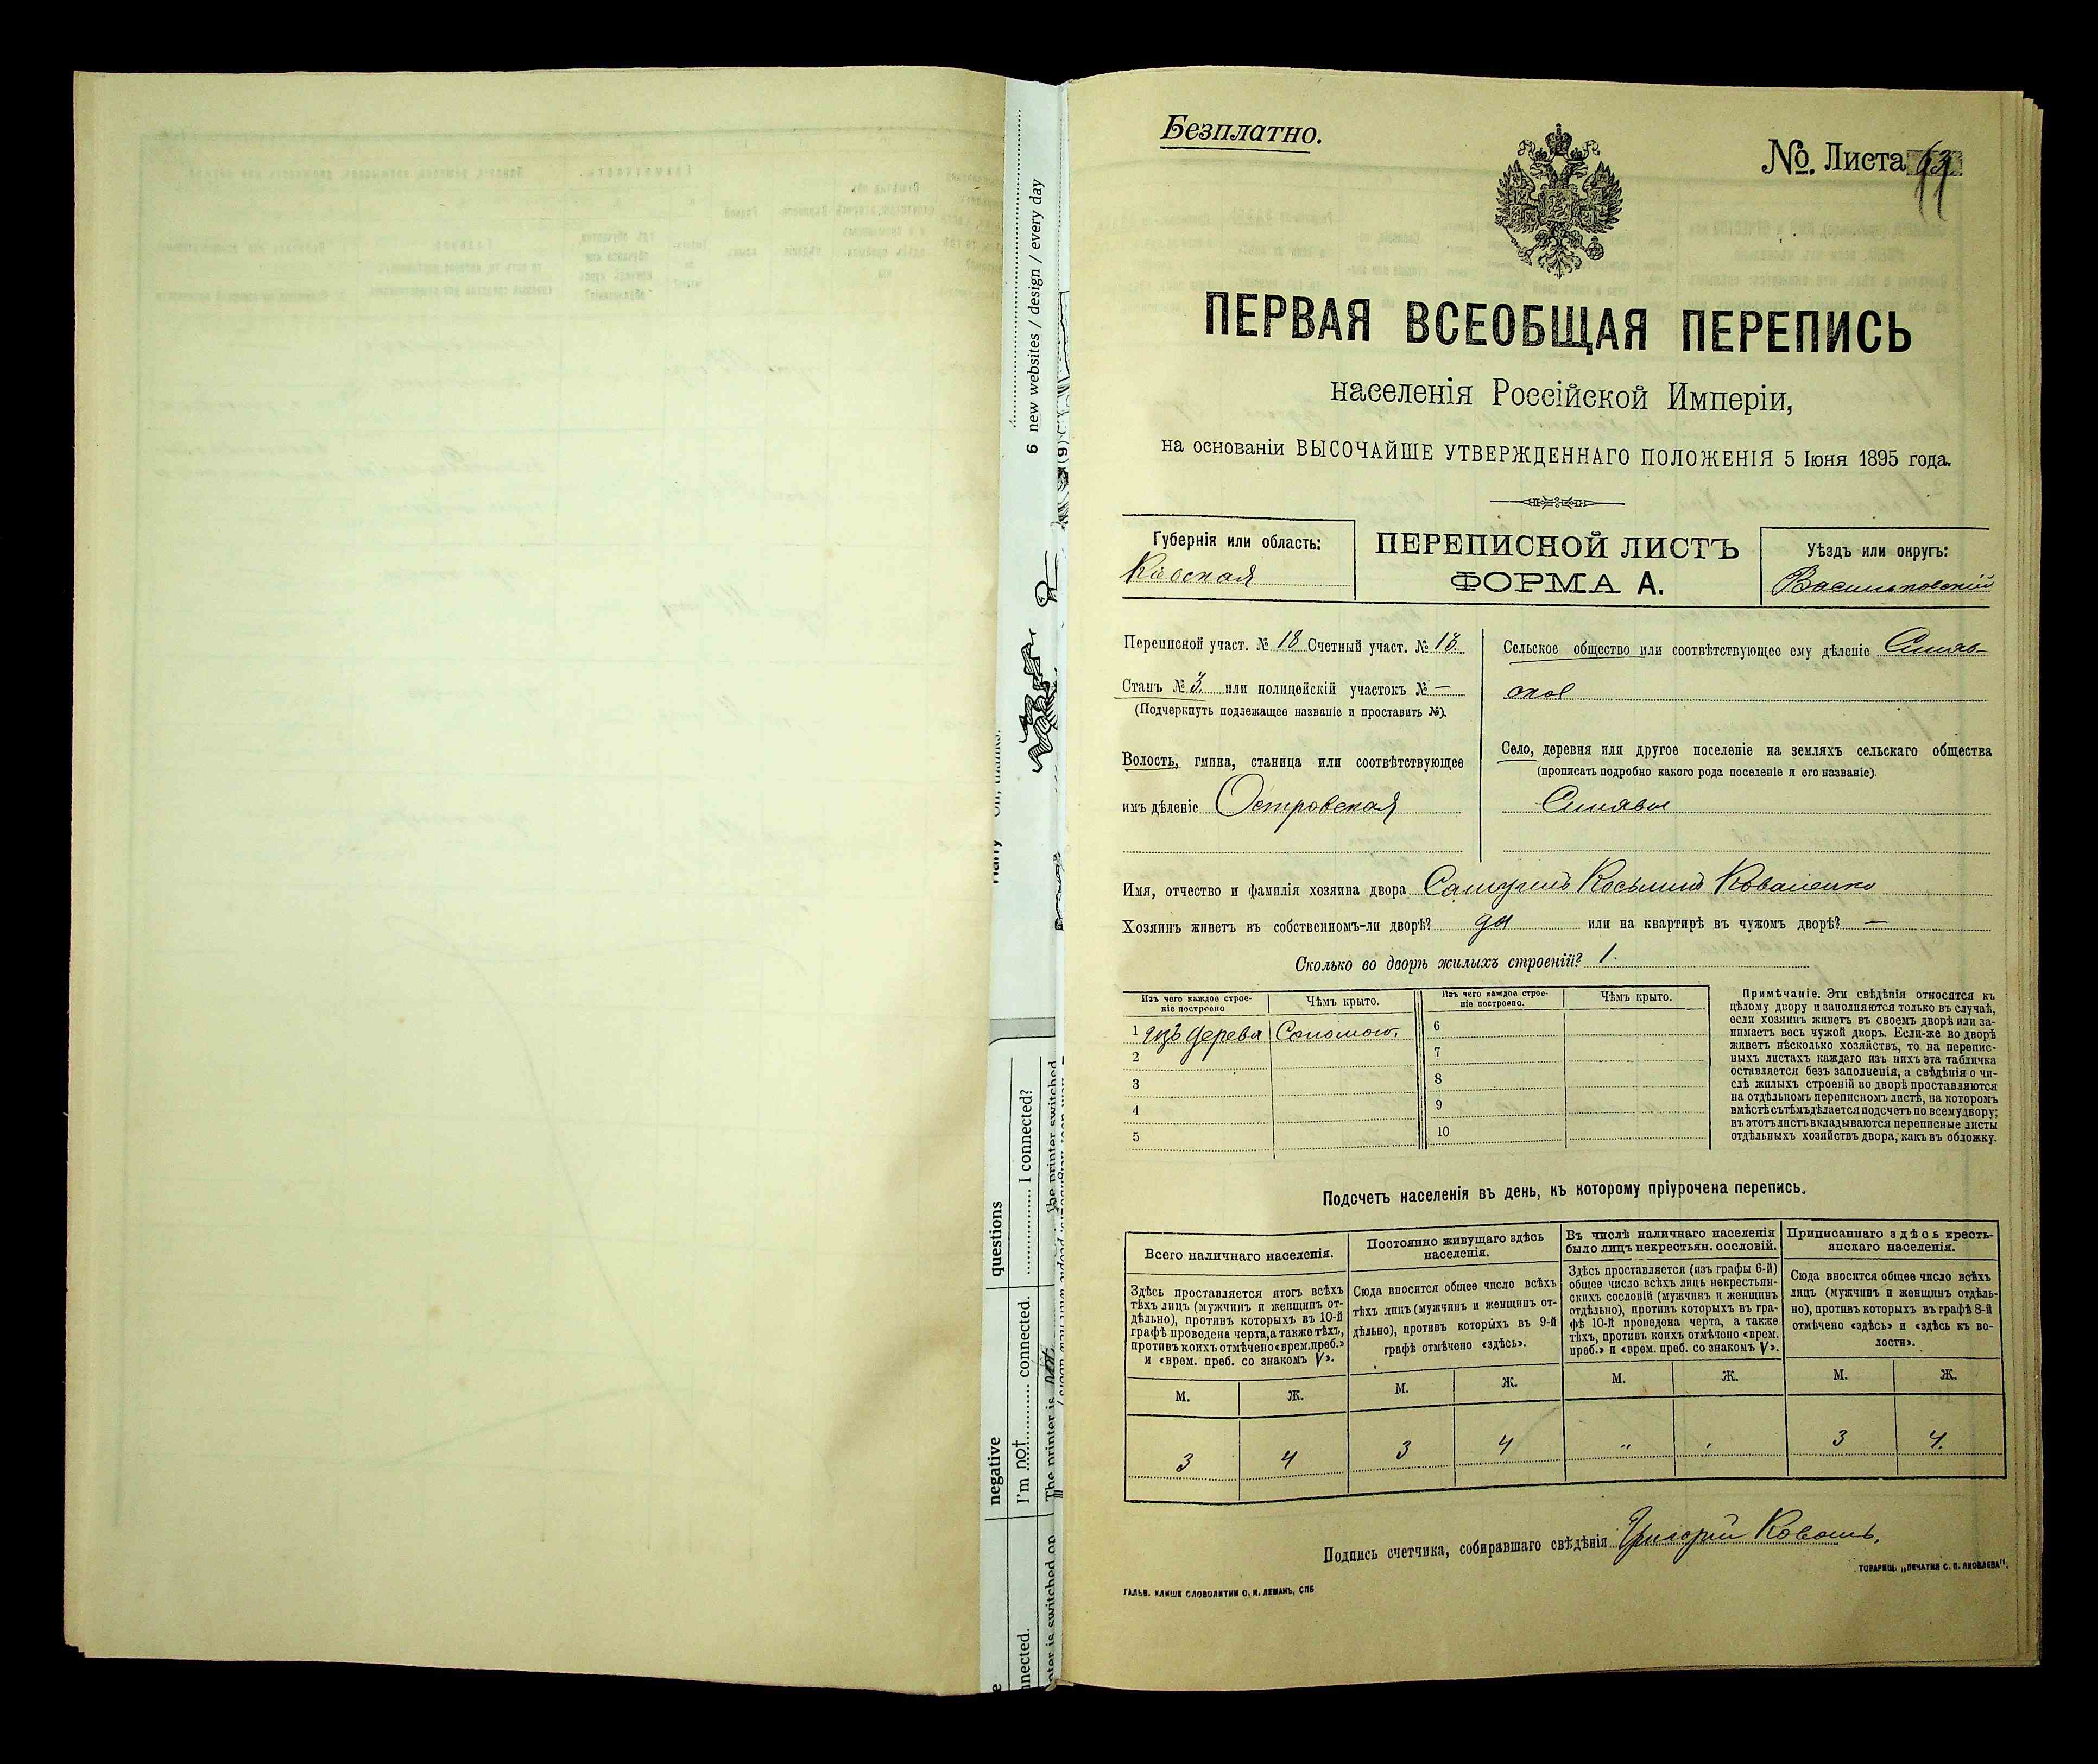 6 new websites / design / every day
questions
I connected?
negative
I'm not connected.
The printer is not
the printer switched
nnected.
Безплатно.
№. Листа
ПЕРВАЯ ВСЕОБЩАЯ ПЕРЕПИСЬ
населенія Россійской Имперіи,
на основаніи ВЫСОЧАЙШЕ УТВЕРЖДЕННАГО ПОЛОЖЕНІЯ 5 Іюня 1895 года.
Губернія или область:
Кіевская
ПЕРЕПИСНОЙ ЛИСТЪ
ФОРМА А.
Уѣздъ или округъ:
Васильковскій
Переписной участ. № 18 Счетный участ. № 13.
Станъ № 3. или полицейскій участокъ № —
(Подчеркнуть подлежащее названіе и проставить №).
Волость, гмина, станица или соотвѣтствующее
имъ дѣленіе Островская
Сельское общество или соотвѣтствующее ему дѣленіе Синяв-
ское
Село, деревня или другое поселеніе на земляхъ сельскаго общества
(прописать подробно какого рода поселеніе и его названіе).
Синява
Имя, отчество и фамилія хозяина двора Косьминъ Коваленко
Хозяинъ живетъ въ собственномъ-ли дворѣ? да или на квартирѣ въ чужомъ дворѣ? —
Сколько во дворѣ жилыхъ строеній? 1.
Изъ чего каждое строе-
ніе построено
Чѣмъ крыто.
Изъ чего каждое строе-
ніе построено.
Чѣмъ крыто.
1 изъ дерева Соломою. 6
2 7
3 8
4 9
5 10
Примѣчаніе. Эти свѣдѣнія относятся къ
цѣлому двору и заполняются только въ случаѣ,
если хозяинъ живетъ въ своемъ дворѣ или за-
нимаетъ весь чужой дворъ. Если-же во дворѣ
живетъ нѣсколько хозяйствъ, то на перепис-
ныхъ листахъ каждаго изъ нихъ эта табличка
оставляется безъ заполненія, а свѣдѣнія о чи-
слѣ жилыхъ строеній во дворѣ проставляются
на отдѣльномъ переписномъ листѣ, на которомъ
вмѣстѣ съ тѣмъ дѣлается подсчетъ по всему двору;
въ этотъ листъ вкладываются переписные листы
отдѣльныхъ хозяйствъ двора, какъ въ обложку.
Подсчетъ населенія въ день, къ которому пріурочена перепись.
Всего наличнаго населенія.
Здѣсь проставляется итогъ всѣхъ
тѣхъ лицъ (мужчинъ и женщинъ от-
дѣльно), противъ которыхъ въ 10-й
графѣ проведена черта, а также тѣхъ,
противъ коихъ отмѣчено «врем. преб.»
и «врем. преб. со знакомъ V».
Постоянно живущаго здѣсь
населенія.
Сюда вносится общее число всѣхъ
тѣхъ лицъ (мужчинъ и женщинъ от-
дѣльно), противъ которыхъ въ 9-й
графѣ отмѣчено «здѣсь».
Въ числѣ наличнаго населенія
было лицъ некрестьян. сословій.
Здѣсь проставляется (изъ графы 6-й)
общее число всѣхъ лицъ некрестьян-
скихъ сословій (мужчинъ и женщинъ
отдѣльно), противъ которыхъ въ гра-
фѣ 10-й проведена черта, а также
тѣхъ, противъ коихъ отмѣчено «врем.
преб.» и «врем. преб. со знакомъ V».
Приписаннаго здѣсь кресть-
янскаго населенія.
Сюда вносится общее число всѣхъ
лицъ (мужчинъ и женщинъ отдѣль-
но), противъ которыхъ въ графѣ 8-й
отмѣчено «здѣсь» и «здѣсь къ во-
лости».
М. Ж. М. Ж. М. Ж. М. Ж.
3 4 3 4 " " 3 4.
Подпись счетчика, собиравшаго свѣдѣнія Григорій Коваль.
ТОВАРИЩ. „ПЕЧАТНЯ С. П. ЯКОВЛЕВА".
ГАЛЬВ. КЛИШЕ СЛОВОЛИТНИ О. И. ЛЕМАНЪ, СПБ